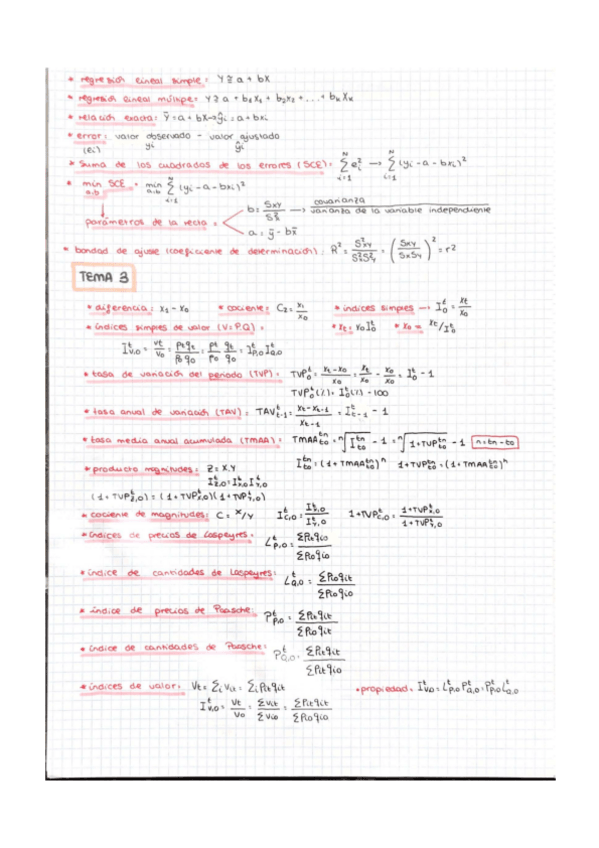 * regresión lineal simple: Y ≅ a + bX
* regresión lineal múltiple: Y ≅ a + b₁X₁ + b₂X₂ + ... + bₖXₖ
* relación exacta: Ŷ = a + bX → ŷᵢ = a + bxᵢ
* error: valor observado - valor ajustado
(eᵢ) yᵢ ŷᵢ
* Suma de los cuadrados de los errores (SCE): Σᵢ₌₁ᴺ eᵢ² → Σᵢ₌₁ᴺ (yᵢ - a - bxᵢ)²
* min SCE = min Σᵢ₌₁ᴺ (yᵢ - a - bxᵢ)²
a.b a.b
b = Sxy / S²x → covarianza / varianza de la variable independiente
parámetros de la recta =
a = ȳ - bx̄
* bondad de ajuste (coeficiente de determinación): R² = S²xy / S²x S²y = (Sxy / SxSy)² = r²
TEMA 3
* diferencia: x₁ - x₀ * cociente: C₂ = x₁/x₀ * índices simples → I₀ᵗ = xt/x₀
* índices simples de valor (V=P.Q) = * xt = x₀I₀ᵗ * x₀ = xt/I₀ᵗ
Iᵗv,₀ = vt/v₀ = ptqt/p₀q₀ = pt/p₀ qt/q₀ = Iᵗp,₀ Iᵗq,₀
* tasa de variación del periodo (TVP): TVP₀ᵗ = xt - x₀ / x₀ = xt/x₀ - x₀/x₀ = I₀ᵗ - 1
TVP₀ᵗ(%) = I₀ᵗ(%) - 100
* tasa anual de variación (TAV) = TAVᵗt-1 = xt - xt-1 / xt-1 = Iᵗt-1 - 1
* tasa media anual acumulada (TMAA): TMAAᵗⁿt₀ = ⁿ√Iᵗⁿt₀ - 1 = ⁿ√1+TVPᵗⁿt₀ - 1 n = tn - t₀
Iᵗⁿt₀ = (1 + TMAAᵗⁿt₀)ⁿ 1+TVPᵗⁿt₀ = (1+TMAAᵗⁿt₀)ⁿ
* producto magnitudes: Z = X.Y
Iᵗz,₀ = Iᵗx,₀ Iᵗy,₀
(1+TVPᵗz,₀) = (1+TVPᵗx,₀)(1+TVPᵗy,₀)
* cociente de magnitudes: C = X/Y Iᵗc,₀ = Iᵗx,₀ / Iᵗy,₀ 1+TVPᵗc,₀ = 1+TVPᵗx,₀ / 1+TVPᵗy,₀
* índices de precios de Laspeyres: Lᵗp,₀ = Σpitqi₀ / Σpi₀qi₀
* índice de cantidades de Laspeyres: Lᵗq,₀ = Σpi₀qit / Σpi₀qi₀
* índice de precios de Paasche: Pᵗp,₀ = Σpitqit / Σpi₀qit
* índice de cantidades de Paasche: Pᵗq,₀ = Σpitqit / Σpitqi₀
* índices de valor: Vt = Σᵢ vit = Σᵢ pitqit * propiedad: Iᵗv,₀ = Lᵗp,₀ Pᵗq,₀ = Pᵗp,₀ Lᵗq,₀
Iᵗv,₀ = Vt/V₀ = Σvit / Σvi₀ = Σpitqit / Σpi₀qi₀